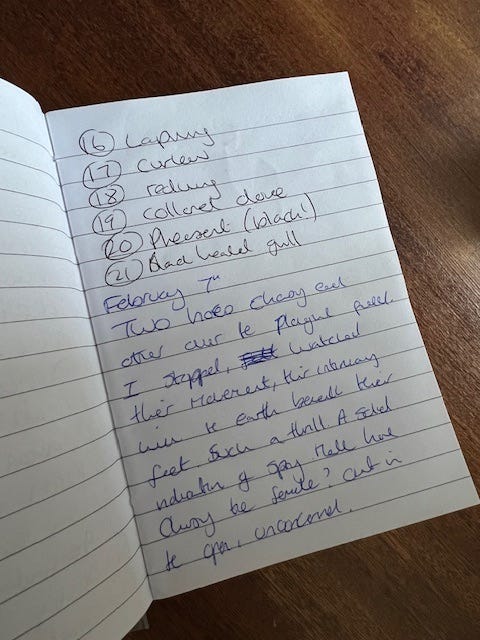 (16) Lapwing
(17) Curlew
(18) redwing
(19) Collared dove
(20) Pheasant (black!)
(21) Black headed gull
February 7th
Two hares chasing each
other over the field.
I stopped, watched
their movement, their
with the earth beneath their
feet. Such a thrill. A
indication of Spring. Male hare
chasing the female? Out in
the open, unconcerned.